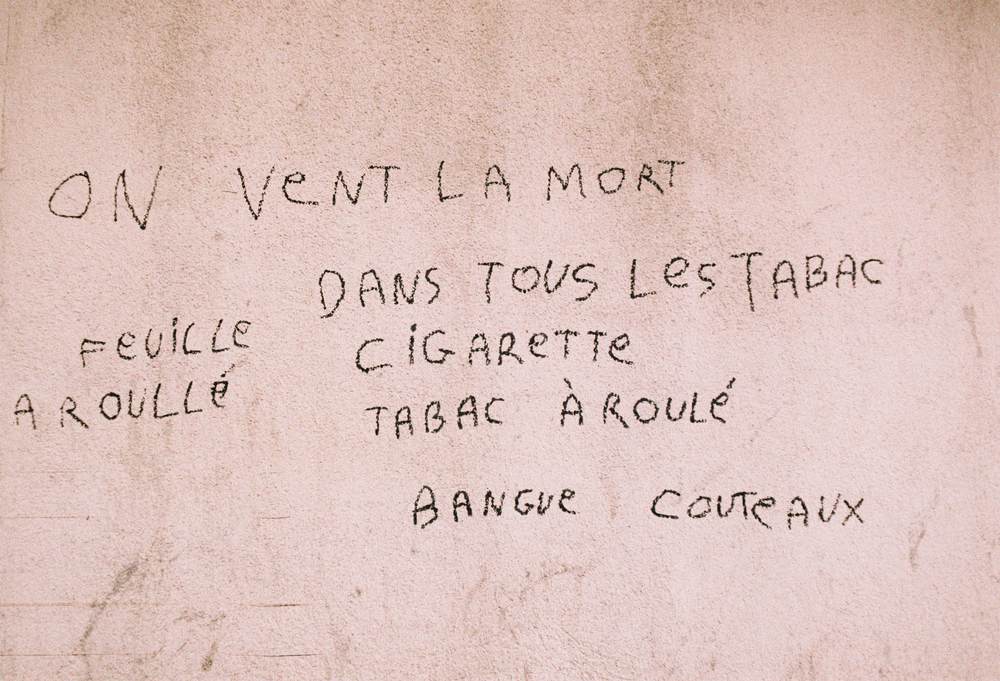 ON VeNT LA MORT
DANS TOUS LesTABAC
FeUiLLe
A ROULLé
CiGAReTTe
TABAC À ROULé
BANGUe COUTeAUX